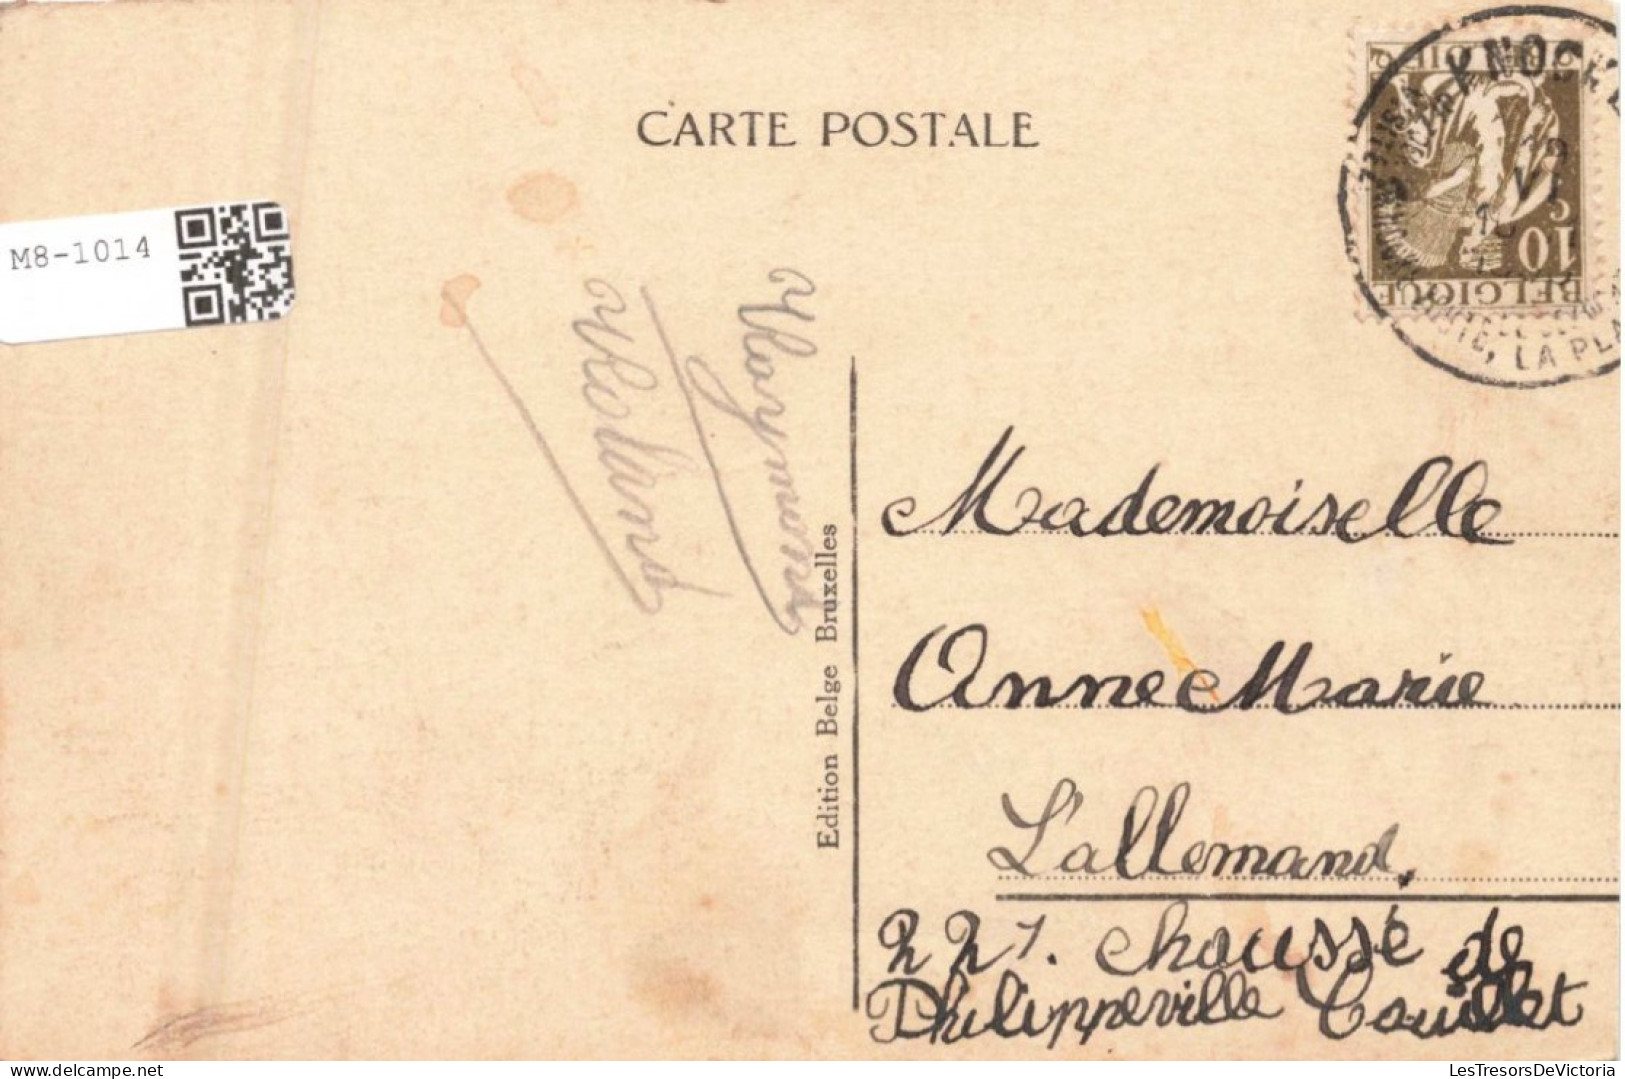 CARTE POSTALE
M8-1014
KNOCKE
BELGIQUE
10
c
LA PLA
Edition Belge Bruxelles
Mademoiselle
Anne Marie
L'allemand,
221. chaussé de
Philippeville Couillet
LesTresorsDeVictoria